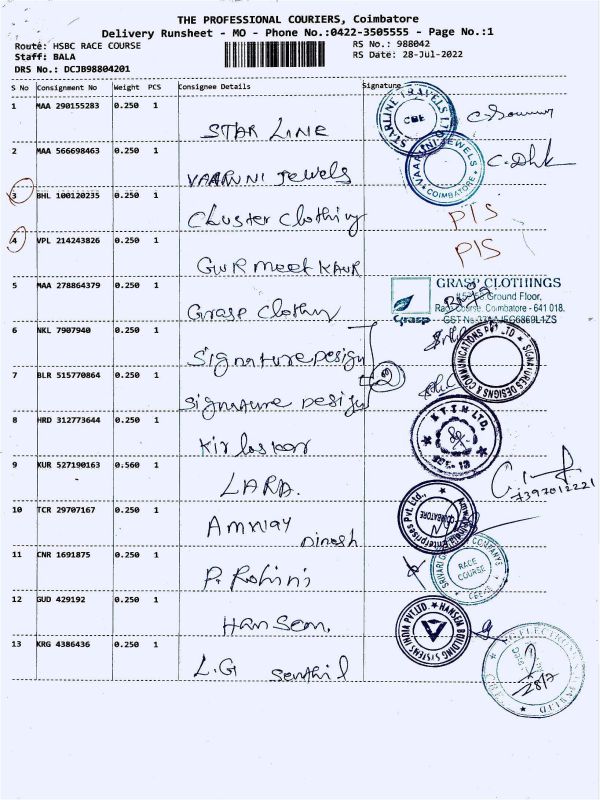 THE PROFESSIONAL COURIERS, Coimbatore
Delivery Runsheet - MO - Phone No.:0422-3505555 - Page No.:1
Route: HSBC RACE COURSE RS No.: 988042
Staff: BALA RS Date: 28-Jul-2022
DRS No.: DCJB98804201
S No Consignment No Weight PCS Consignee Details Signature
1 MAA 290155283 0.250 1
STAR LINE
STARLINE TRAVELS
CBE
2 MAA 566698463 0.250 1
VAARUNI Jewels
VAARUNI JEWELS
COIMBATORE
3 BHL 100120235 0.250 1
Cluster Clothing
PIS
4 VPL 214243826 0.250 1
GURMEET KAUR
PIS
5 MAA 278864379 0.250 1
Grasp Clothing
Grasp
GRASP CLOTHINGS
Ground Floor,
Race Course, Coimbatore - 641 018.
6 NKL 7907940 0.250 1
Signature Design
SIGNATURES DESIGNS & COMMUNICATIONS PVT LTD
7 BLR 515770864 0.250 1
Signature Design
2
8 HRD 312773644 0.250 1
Kirloskar
9 KUR 527190163 0.560 1
LARA.
7397012221
10 TCR 29707167 0.250 1
Amway Dinesh
Amway India Enterprises Pvt. Ltd.,
COIMBATORE
11 CNR 1691875 0.250 1
P. Rohini
RACE
COURSE
12 GUD 429192 0.250 1
Hanseon.
HANSEN BUILDING SYSTEMS INDIA PVT.LTD.
13 KRG 4386436 0.250 1
L.G Senthil
28/7